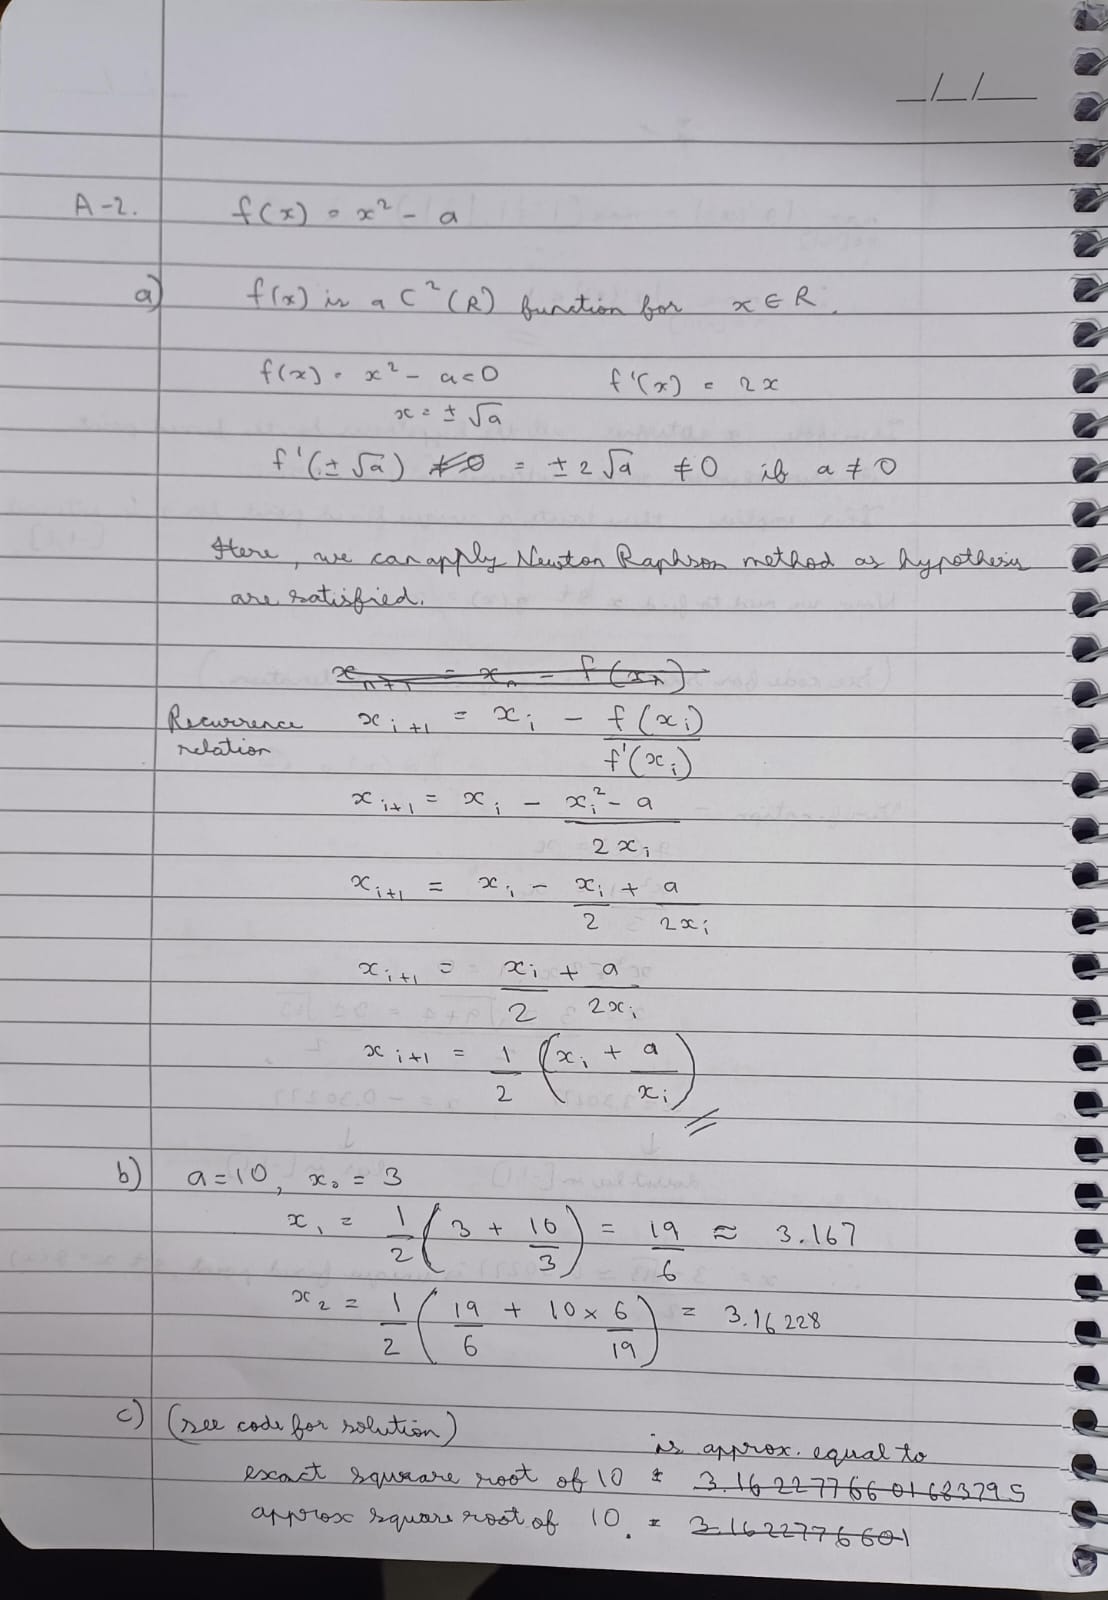 _/_/__
A-2. f(x) = x² - a
a) f(x) is a C²(R) function for x ∈ R.
f(x) = x² - a = 0 f'(x) = 2x
x = ± √a
f'(± √a) ≠ 0 = ± 2 √a ≠ 0 if a ≠ 0
Here, we can apply Newton Raphson method as hypothesis
are satisfied.
x_{n+1} = x_n - f(x_n)
Recurrence relation x_{i+1} = x_i - f(x_i) / f'(x_i)
x_{i+1} = x_i - (x_i² - a) / 2x_i
x_{i+1} = x_i - x_i/2 + a/2x_i
x_{i+1} = x_i/2 + a/2x_i
x_{i+1} = 1/2 (x_i + a/x_i)
b) a = 10, x₀ = 3
x₁ = 1/2 (3 + 10/3) = 19/6 ≈ 3.167
x₂ = 1/2 (19/6 + 10 × 6/19) = 3.16228
c) (see code for solution)
is approx. equal to
exact square root of 10 = 3.1622776601683795
approx square root of 10. = 3.1622776601